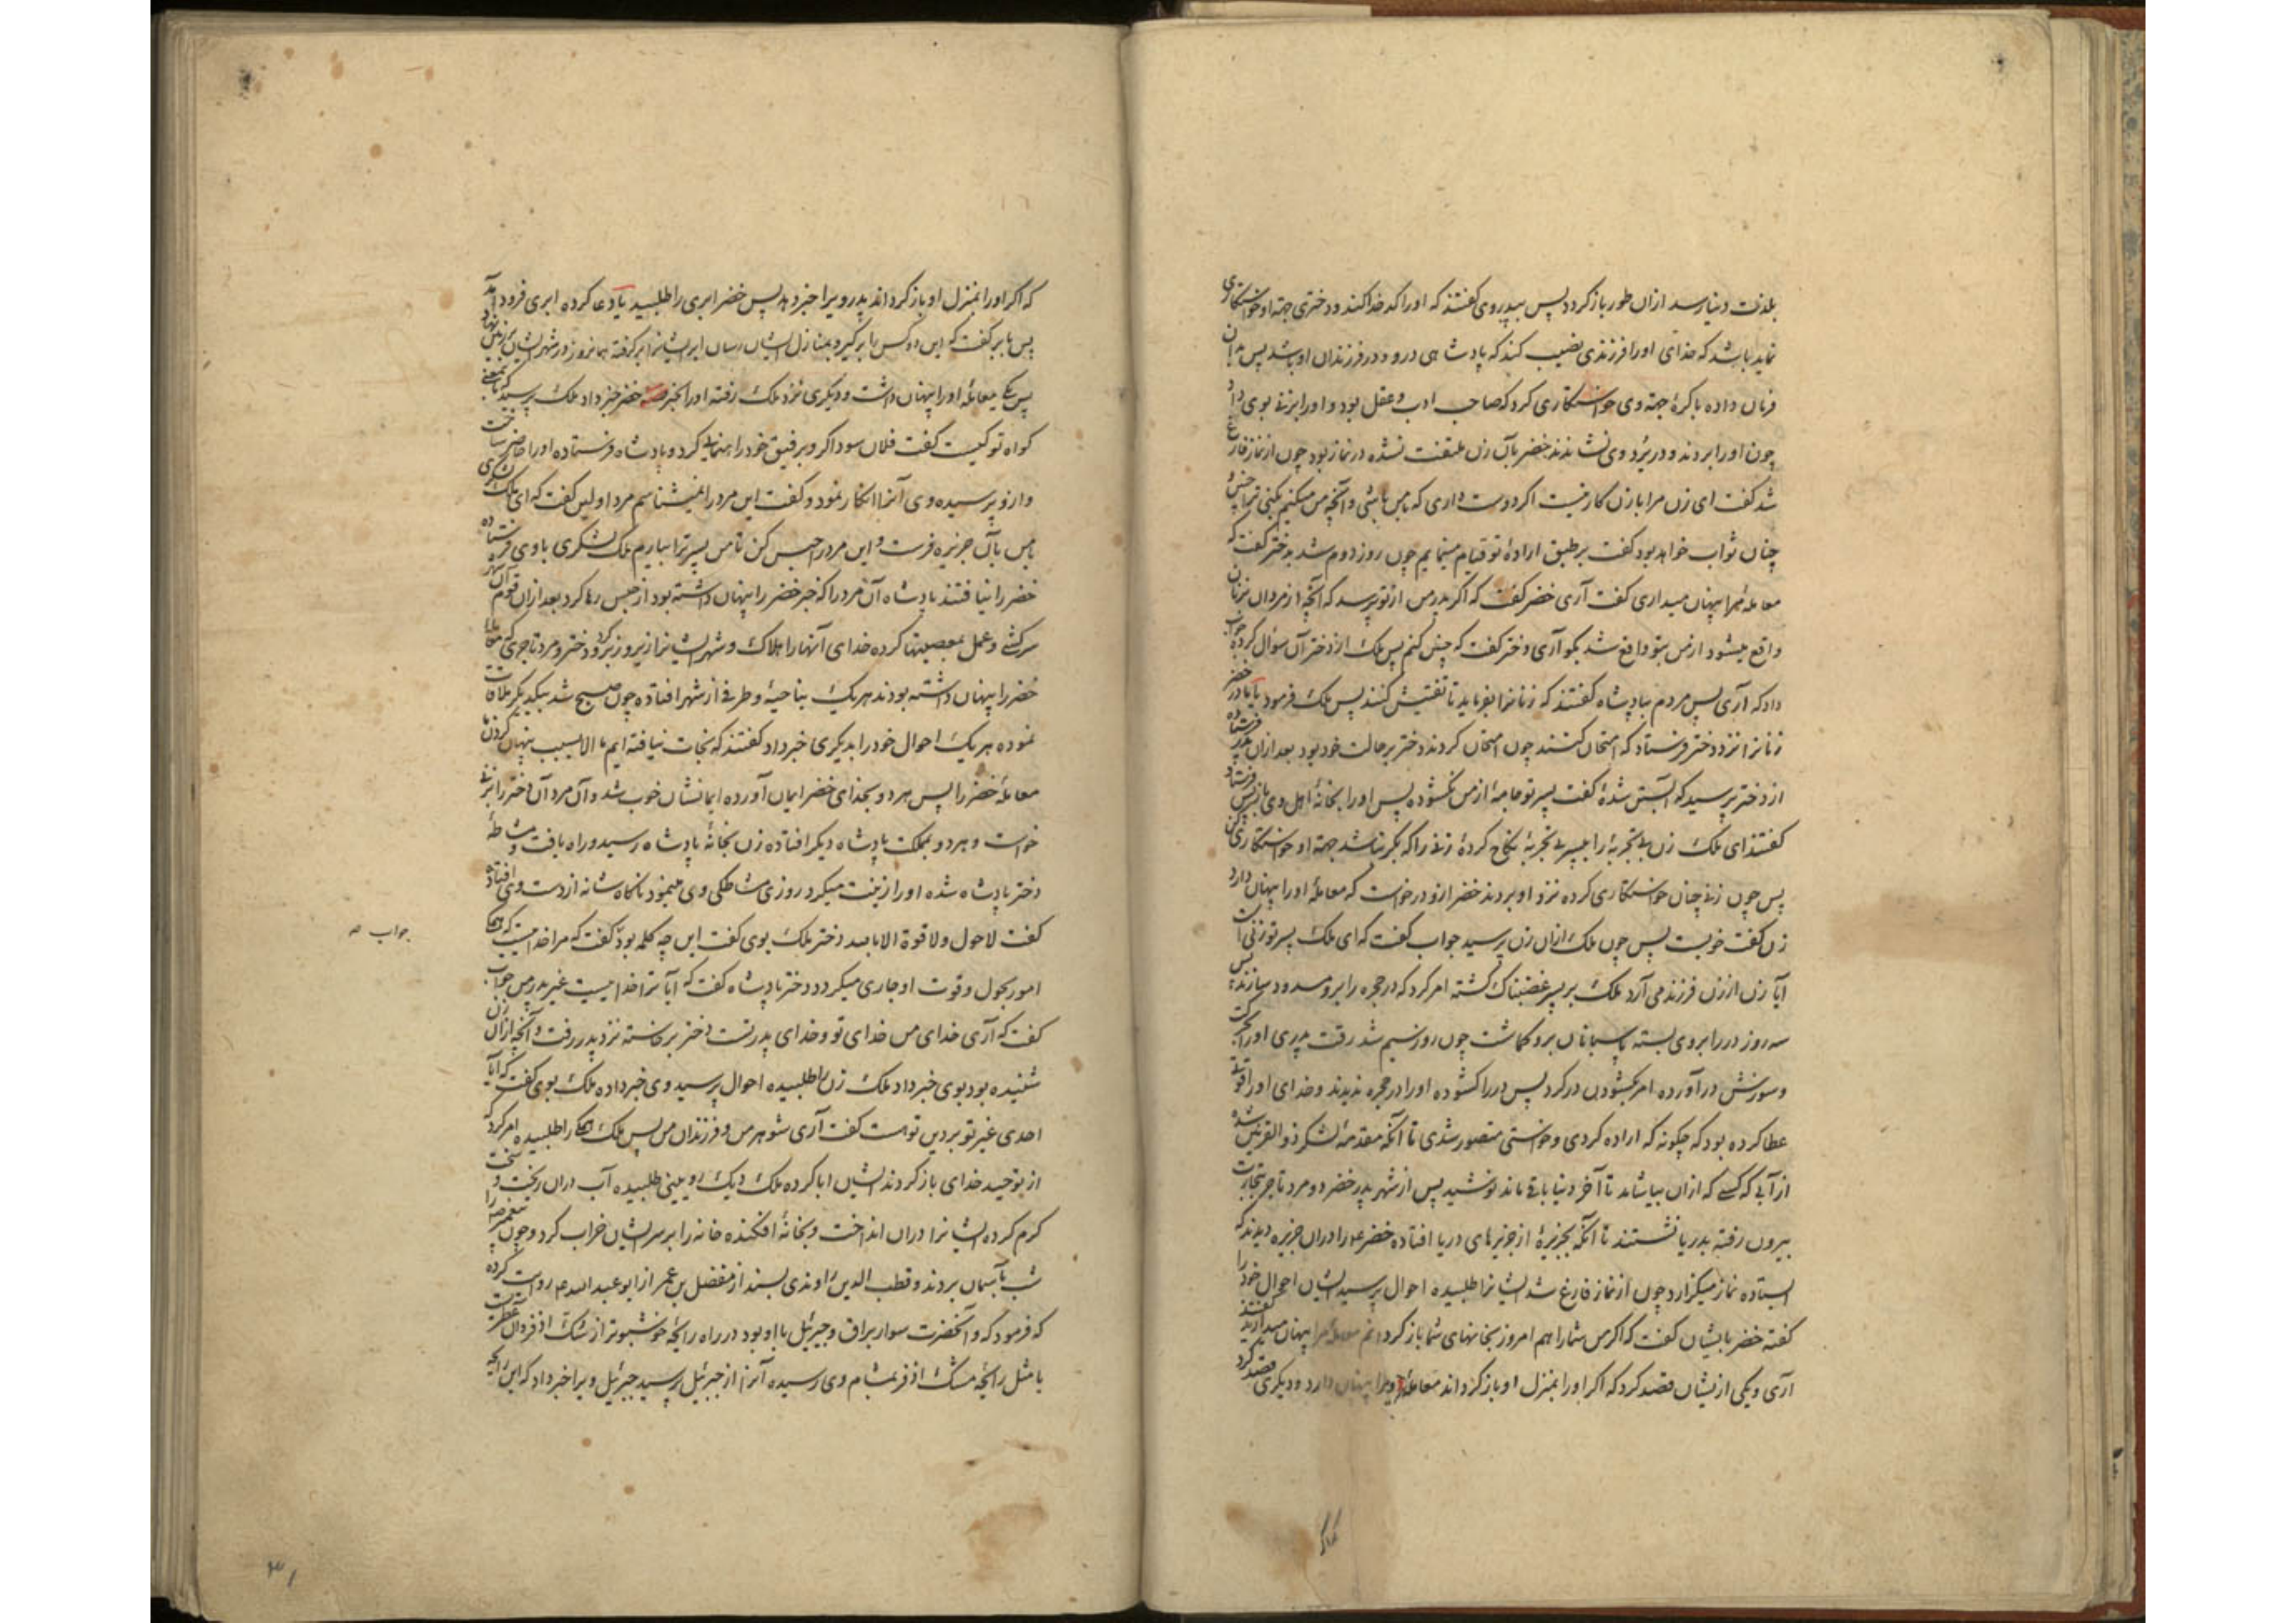 بلذت دنیا رسد ازان طور باز کردد پس بپدر وی کفتند که او را کدخدا کند و دختری جهة او خواستکاری
نماید باشد که خدای او را فرزندی نصیب کند که پادشاهی در و و در فرزندان او باشد پس بدان
فرمان داده باکرهٔ جهة وی خواستکاری کرد که صاحب ادب و عقل بود و او را بزنی بوی داد
چون او را بردند و در نزد وی نشاندند خضر بآن زن ملتفت نشده در نماز بود چون از نماز فارغ
شد کفت ای زن مرا با زن کار نیست اکر دوست داری که با من باشی و آنچه من میکنم بکنی ترا
چنان ثواب خواهد بود کفت بر طبق ارادهٔ تو قیام مینمایم چون روز دوم شد بدختر کفت که
معاملهٔ مرا پنهان میداری کفت آری خضر کفت که اکر پدر من از تو پرسد که آنچه از مردان بزنان
واقع میشود از من بتو واقع شد بکو آری دختر کفت که چنین کنم پس ملک از دختر آن سؤال کرده جواب
داد که آری پس مردم بپادشاه کفتند که زنانرا بفرماید تا تفتیش کنند پس ملک فرمود تا
زنانرا نزد دختر فرستاد که امتحان کنند چون امتحان کردند دختر بر حالت خود بود بعد ازان
از دختر پرسید که آبستن شدهٔ کفت پسر تو جامهٔ از من نکشوده پس او را بخانهٔ اهل وی باز پس فرستاد
کفتند ای ملک زن بی تجربهٔ را بپسر بی تجربهٔ نکاح کردهٔ زنی را که بکر نباشد جهة او خواستکاری کن
پس چون زنی چنان خواستکاری کرده نزد او بردند خضر ازو درخواست که معاملهٔ او را پنهان دارد
زن کفت خوبست پس چون ملک ازان زن پرسید جواب کفت که ای ملک پسر تو زنی است
آیا زن از زن فرزند می آرد ملک بر پسر غضبناک کشته امر کرد که در حجره را برو مسدود سازند پس
سه روز در را بروی بسته پاسبانان برو کماشت چون روز سیم شد رقت پدری او را بحرکت
و سوزش در آورده امر بکشودن در کرد پس در را کشوده او را در حجره ندیدند و خدای او را قوتی
عطا کرده بود که چکونه که اراده کردی و خواستی متصور شدی تا آنکه مقدمهٔ لشکر ذو القرنین شده
از آبی که کسی که ازان بیاشامد تا آخر دنیا باقی ماند نوشید پس از شهر پدر خضر دو مرد تاجر بتجارت
بیرون رفته بدریا نشستند تا آنکه بجزیرهٔ از جزیرهای دریا افتاده خضر ع را دران جزیره دیدند که
ایستاده نماز میکزارد چون از نماز فارغ شد ایشانرا طلبیده احوال پرسید ایشان احوال خود را
کفته خضر بایشان کفت که اکر من شما را هم امروز بخانهای شما باز کردانم معاملهٔ مرا پنهان میدارید کفتند
آری و یکی ازیشان قصد کرد که اکر او را بمنزل او باز کرداند معاملهٔ ویرا پنهان دارد و دیکری قصد کرد
که اکر او را بمنزل او باز کرداند پدر ویرا خبر دهد پس خضر ابری را طلبید یا دعا کرده ابری فرود آمد
پس بابر کفت که این دو کس را بر کیر و بمنازل ایشان رسان ابر ایشانرا بر کرفته همانروز در شهر ایشان بر زمین نهاد
پس یکی معاملهٔ او را پنهان داشت و دیکری نزد ملک رفته او را بخبر خضر خبر داد ملک پرسید که باین معنی
کواه تو کیست کفت فلان سوداکر و بر فیق خود راهنمایی کرد و پادشاه فرستاده او را حاضر ساخت
و ازو پرسیده وی آنرا انکار نمود و کفت این مرد را نمیشناسم مرد اولین کفت که ای ملک لشکری
با من بآن جزیره فرست و این مرد را حبس کن تا من پسر ترا بیارم ملک لشکری با وی فرستاده
خضر را نیافتند پادشاه آن مرد را که خبر خضر را پنهان داشته بود از حبس رها کرد بعد ازان قوم آن شهر
سرکشی و عمل بمعصیتها کرده خدای آنها را هلاک و شهر ایشانرا زیر و زبر کرد و دختر و مرد تاجری که معاملهٔ
خضر را پنهان داشته بودند هریک بناحیهٔ و طرفی از شهر افتاده چون صبح شد بیکدیکر ملاقات
نموده هریک احوال خود را بدیکری خبر داد کفتند که نجات نیافته ایم ما الا بسبب پنهان کردن ما
معاملهٔ خضر را پس هر دو بخدای خضر ایمان آورده ایمانشان خوب شد و آن مرد آن دختر را بزنی
خواست و هر دو بمملکت پادشاه دیکر افتاده زن بخانهٔ پادشاه رسید و راه یافت و مشاطهٔ
دختر پادشاه شده او را زینت میکرد روزی مشاطکی وی مینمود ناکاه شانه از دست وی افتاده
کفت لا حول و لا قوة الا بالله دختر ملک بوی کفت این چه کلمه بود کفت که مرا خداییست که همه
امور بحول و قوت او جاری میکردد دختر پادشاه کفت که آیا ترا خداییست غیر پدر من جواب
کفت که آری خدای من خدای تو و خدای پدر تست دختر برخاسته نزد پدر رفت و آنچه ازان زن
شنیده بود بوی خبر داد ملک زن را طلبیده احوال پرسید وی خبر داده ملک بوی کفت که آیا
احدی غیر تو بر دین تو هست کفت آری شوهر من و فرزندان من پس ملک همه را طلبیده امر کرد که
از توحید خدای باز کردند ایشان ابا کرده ملک دیک رویینی طلبیده آب دران ریخت و سخت
کرم کرده ایشانرا دران انداخت و بخانهٔ افکنده خانه را بر سر ایشان خراب کرد و چون پیغمبر ص را
شب بآسمان بردند و قطب الدین راوندی بسند از مفضل بن عمر از ابو عبد الله ع روایت کرده
که فرمود که و آنحضرت سوار براق و جبرئیل با او بود در راه رایحهٔ خوشبوتر از مشک اذفر دران
یا مثل رایحهٔ مشک اذفر بمشام وی رسیده آنرا از جبرئیل پرسید جبرئیل ویرا خبر داد که این رایحه
جواب صه